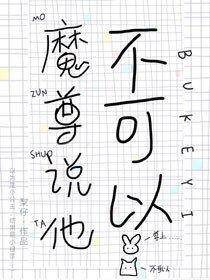 MO
魔
ZUN
尊
SHUO
说
TA
他
不可以
BUKEYI
梨仔 作品
尊上……
不可以